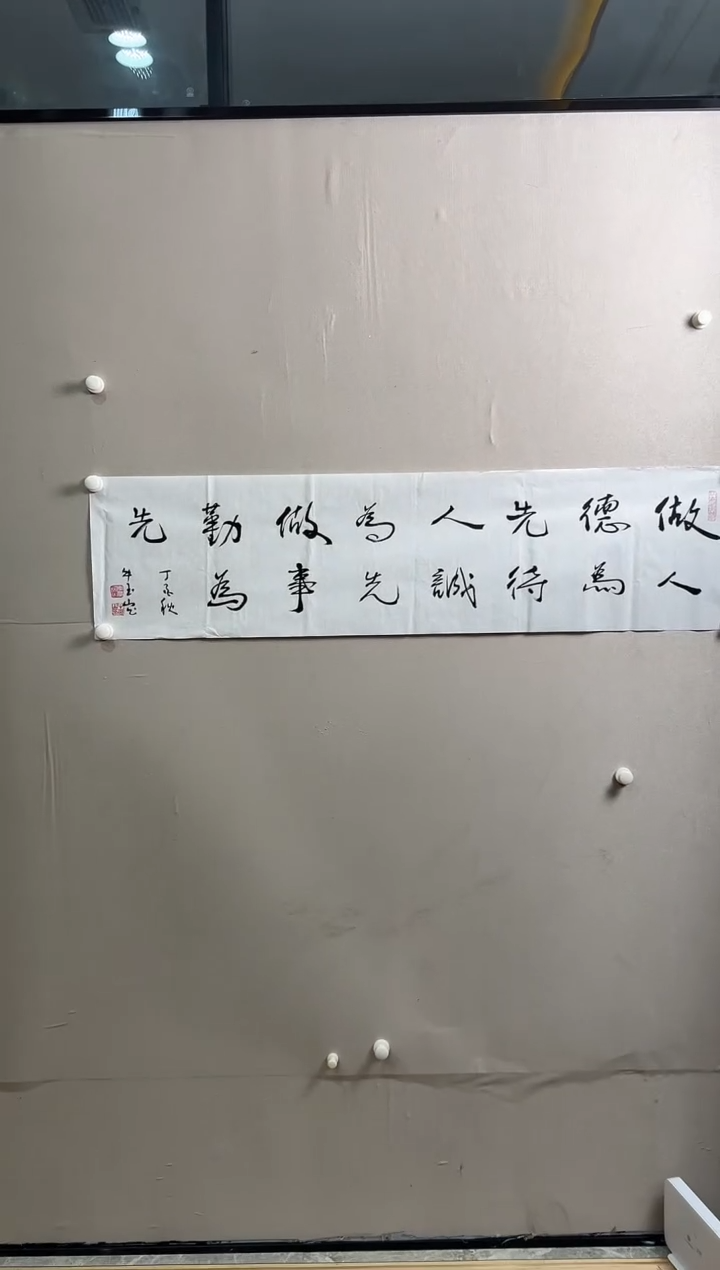 做人
德為
先待
人誠
為先
做事
勤為
先
丁酉秋
牛玉